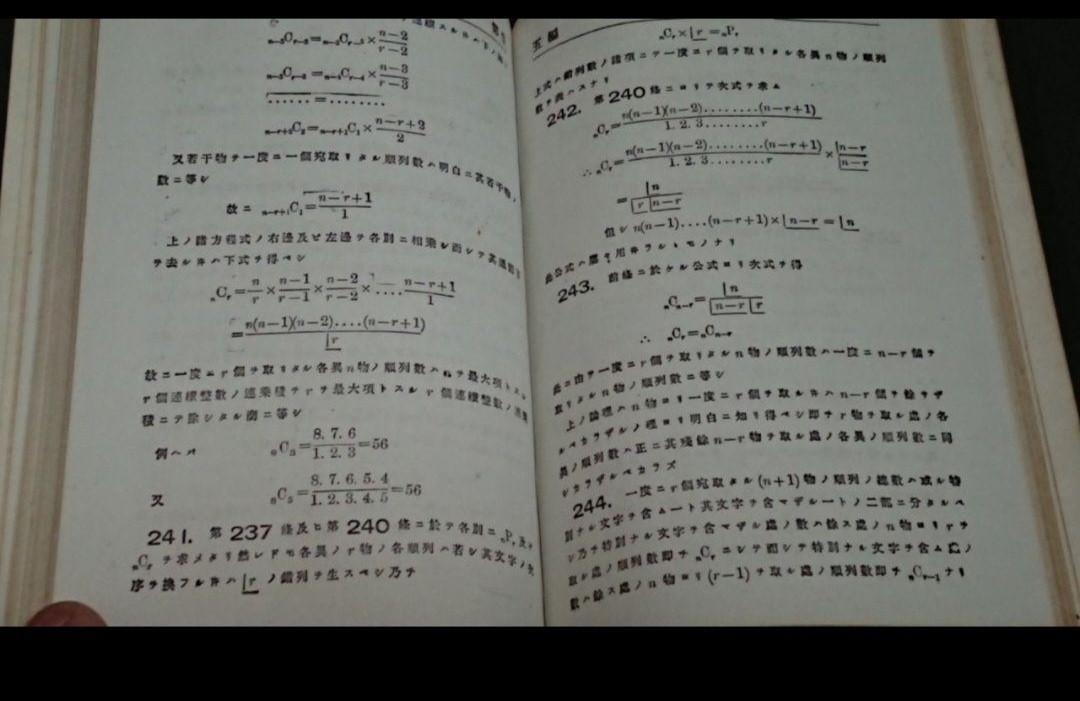 n-2Cr-2=n-2Cr-3×n-2/r-2
n-3Cr-3=n-3Cr-4×n-3/r-3
......=........
n-r+2C2=n-r+1C1×n-r+2/2
又若干物ヲ一度ニ一個宛取リタル順列數ハ明白ニ其若干物ノ
數ニ等シ
故ニ n-r+1C1=n-r+1/1
上ノ諸方程式ノ右邊及ビ左邊ヲ各別ニ相乗シ而シテ其通
ヲ去ルキハ下式ヲ得ベシ
nCr=n/r×n-1/r-1×n-2/r-2×....n-r+1/1
=n(n-1)(n-2)....(n-r+1)/|r
故ニ一度ニr個ヲ取リタル各異n物ノ順列數ハnヲ最大項トスル
r個連續整數ノ連乗積ヲrヲ最大項トスルr個連續整數ノ連乗
積ニテ除シタル商ニ等シ
例ヘバ 8C3=8.7.6/1.2.3=56
又 8C5=8.7.6.5.4/1.2.3.4.5=56
241. 第237條及ヒ第240條ニ於テ各別ニnPr及ヒ
nCrヲ求メタリ然レドモ各異ノr物ノ各順列ハ若シ其文字ノ次
序ヲ換フルキハ|rノ錯列ヲ生スベシ乃チ
五編
nCr×|r=nPr
上式ハ錯列數ノ諸項ニテ一度ニr個ヲ取リタル各異n物ノ順列
數ヲ表ハスナリ
242. 第240條ニヨリテ次式ヲ求ム
nCr=n(n-1)(n-2)........(n-r+1)/1.2.3........r
∴nCr=n(n-1)(n-2)........(n-r+1)/1.2.3........r×|n-r/|n-r
=|n/|r|n-r
但シn(n-1)....(n-r+1)×|n-r=|n
此公式ハ屢々用井ラルヽモノナリ
243. 前條ニ於ケル公式ヨリ次式ヲ得
nCn-r=|n/|n-r|r
∴ nCr=nCn-r
此ニ由テ一度ニr個ヲ取リタルn物ノ順列數ハ一度ニn-r個ヲ
取リタルn物ノ順列數ニ等シ
上ノ論理ハn物ヨリ一度ニr個ヲ取ルキハn-r個ヲ餘サザ
ルベカラザルノ理ヨリ明白ニ知リ得ベシ即チr物ヲ取ル處ノ各
異ノ順列數ハ正ニ其殘餘n-r物ヲ取ル處ノ各異ノ順列數ニ同
シカラザルベカラズ
244. 一度ニr個宛取タル(n+1)物ノ順列ノ總數ハ或ル特
別ナル文字ヲ含ムート其文字ヲ含マザルートノ二部ニ分タルベ
シ乃チ特別ナル文字ヲ含マザル處ノ數ハ餘ス處ノn物ヨリrヲ
取ル處ノ順列數即チnCrニシテ而シテ特別ナル文字ヲ含ム處ノ
數ハ餘ス處ノn物ヨリ(r-1)ヲ取ル處ノ順列數即チnCr-1ナリ